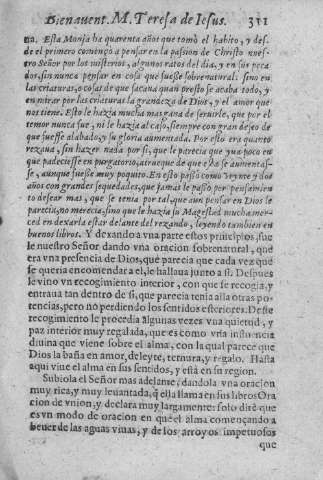 Bienauent. M. Teresa de Iesus. 311
na. Esta Monja ha quarenta años que tomò el habito, y des-
de el primero començò a pensar en la passion de Christo nues-
tro Señor por los misterios, algunos ratos del dia, y en sus peca
dos, sin nunca pensar en cosa que fuesse sobrenatural: sino en
las criaturas, o cosas de que sacaua quan presto se acaba todo, y
en mirar por las criaturas la grandeza de Dios, y el amor que
nos tiene. Esto le hazia mucha mas gana de seruirle, que por el
temor nunca fue, ni le hazia al caso, siempre con gran deseo de
que fuesse alabado, y su gloria aumentada. Por esto era quanto
rezaua, sin hazer nada por si, que le parecia que yua poco en
que padeciesse en purgatorio, a trueque de que esta se aumentas-
se, aunque fuesse muy poquito. En esto passò como veynte y dos
años con grandes sequedades, que jamas le passò por pensamien
to desear mas, que se tenia por tal, que aun pensar en Dios le
parecia, no merecia, sino que le hazia su Magestad mucha mer-
ced en dexarla estar delante del rezando, leyendo tambien en
buenos libros. Y dexando a vna parte estos principios, fue
le nuestro Señor dando vna oracion sobrenatural, que
era vna presencia de Dios, que parecia que cada vez que
se queria encomendar a el, le hallaua junto a si. Despues
le vino vn recogimiento interior, con que se recogia, y
entraua tan dentro de si, que parecia tenia alla otras po-
tencias, pero no perdiendo los sentidos esteriores. Deste
recogimiento le procedia algunas vezes vna quietud, y
paz interior muy regalada, que es como vna influencia
diuina que viene sobre el alma, con la qual parece que
Dios la baña en amor, deleyte, ternura, y regalo. Hasta
aqui viue el alma en sus sentidos, y està en su region.
Subiola el Señor mas adelante, dandola vna oracion
muy rica, y muy leuantada, q̃ ella llama en sus libros Ora
cion de vnion, y declara muy largamente: solo dirè que
es vn modo de oracion en què el alma començando a
beuer de las aguas viuas, y de los arroyos impetuosos
que